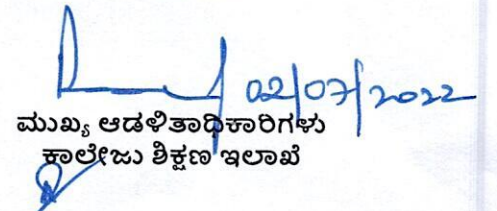 02/07/2022
ಮುಖ್ಯ ಆಡಳಿತಾಧಿಕಾರಿಗಳು
ಕಾಲೇಜು ಶಿಕ್ಷಣ ಇಲಾಖೆ